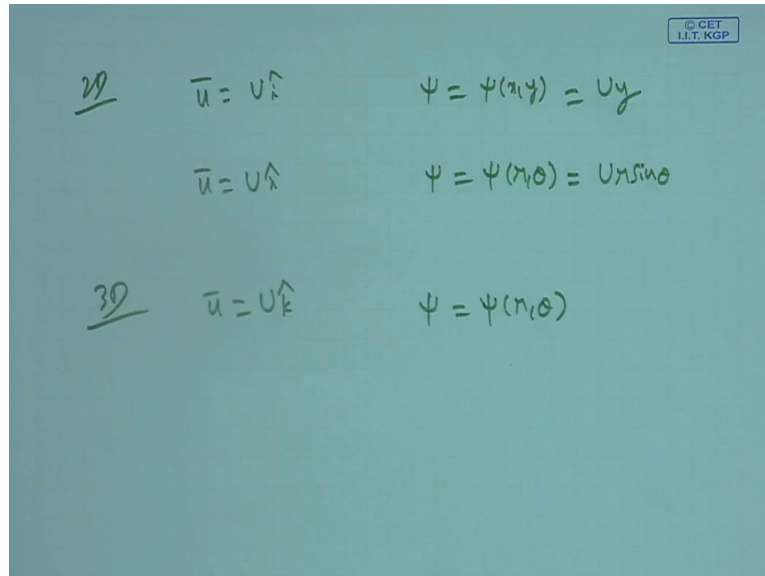 © CET
I.I.T. KGP
2D ū = Uî ψ = ψ(x,y) = Uy
ū = Uî ψ = ψ(r,θ) = Ur sinθ
3D ū = Uk̂ ψ = ψ(r,θ)